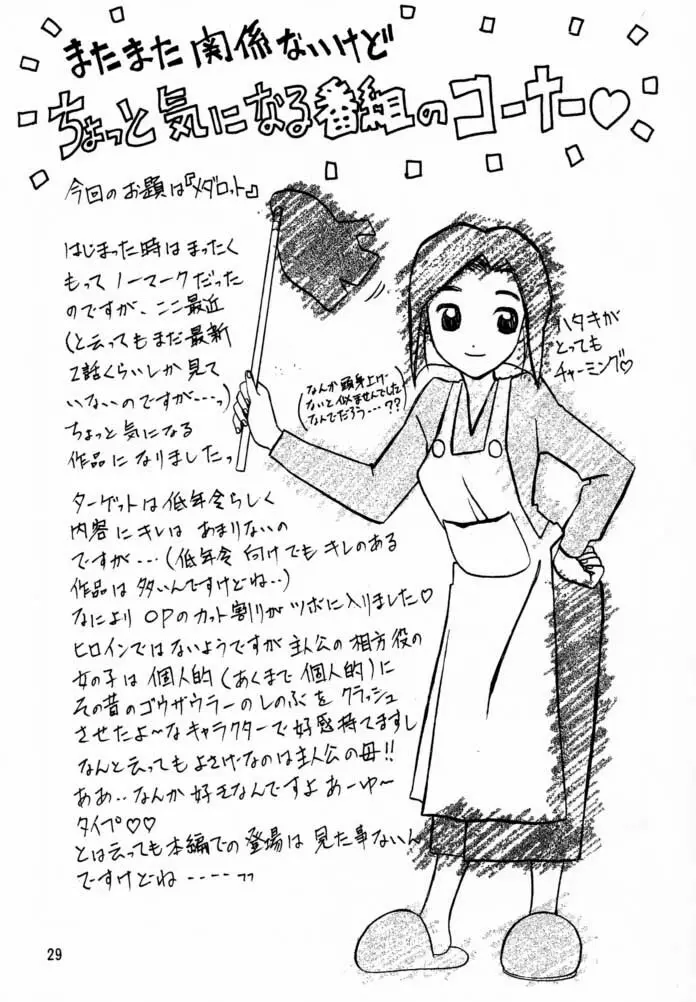 またまた関係ないけど
ちょっと気になる番組のコーナー♡
今回のお題は『メダロット』
はじまった時はまったく
もってノーマークだった
のですが、ここ最近
(と云ってもまだ最新
2話くらいしか見て
いないのですが…っ)
ちょっと気になる
作品になりましたっ
(なんか頭身上げ
ないと似ませんでした
なんでだろう…??)
ハタキが
とっても
チャーミング♡
ターゲットは低年令らしく
内容にキレはあまりないの
ですが…(低年令向けでもキレのある
作品は多いんですけどね‥)
なによりOPのカット割りがツボに入りました♡
ヒロインではないようですが主人公の相方役の
女の子は個人的(あくまで個人的)に
その昔のゴウザウラーのしのぶをクラッシュ
させたよ〜なキャラクターで好感持てますし
なんと云ってもよさげなのは主人公の母!!
ああ‥なんか好きなんですよあーゆ〜
タイプ♡♡
とは云っても本編での登場は見た事ないん
ですけどね----っっ
29